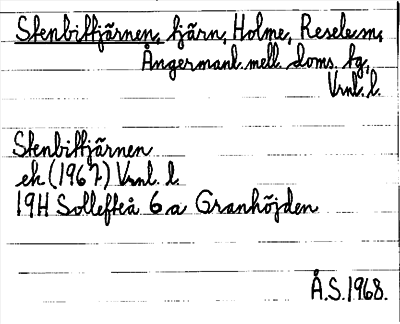 Stenbittjärnen, tjärn, Holme, Resele sn,
Ångermanl. mell. doms. tg,
Vrnl. l.
Stenbittjärnen
ek (1967) Vrnl. l.
19H Sollefteå 6 a Granhöjden
Å.S. 1968.